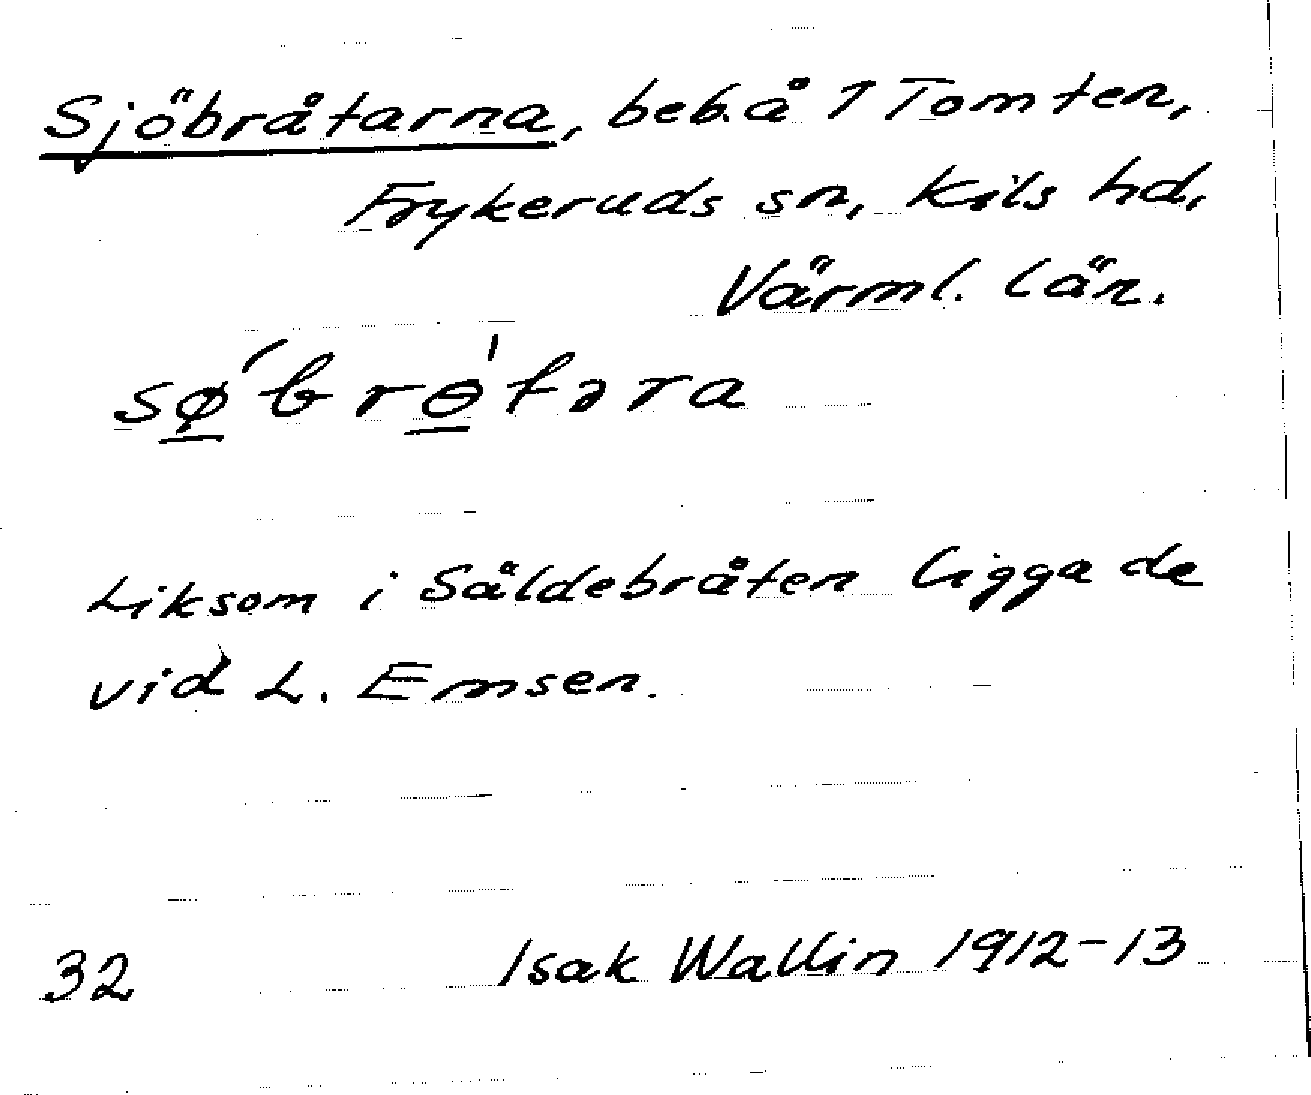 Sjöbråtarna, beb. å 1 Tomten,
Frykeruds sn, Kils hd,
Värml. län.
sǿ̲brɵ̲̀tɔra
Liksom i Såldebråten ligga de
vid L. Emsen.
32 Isak Wallin 1912-13